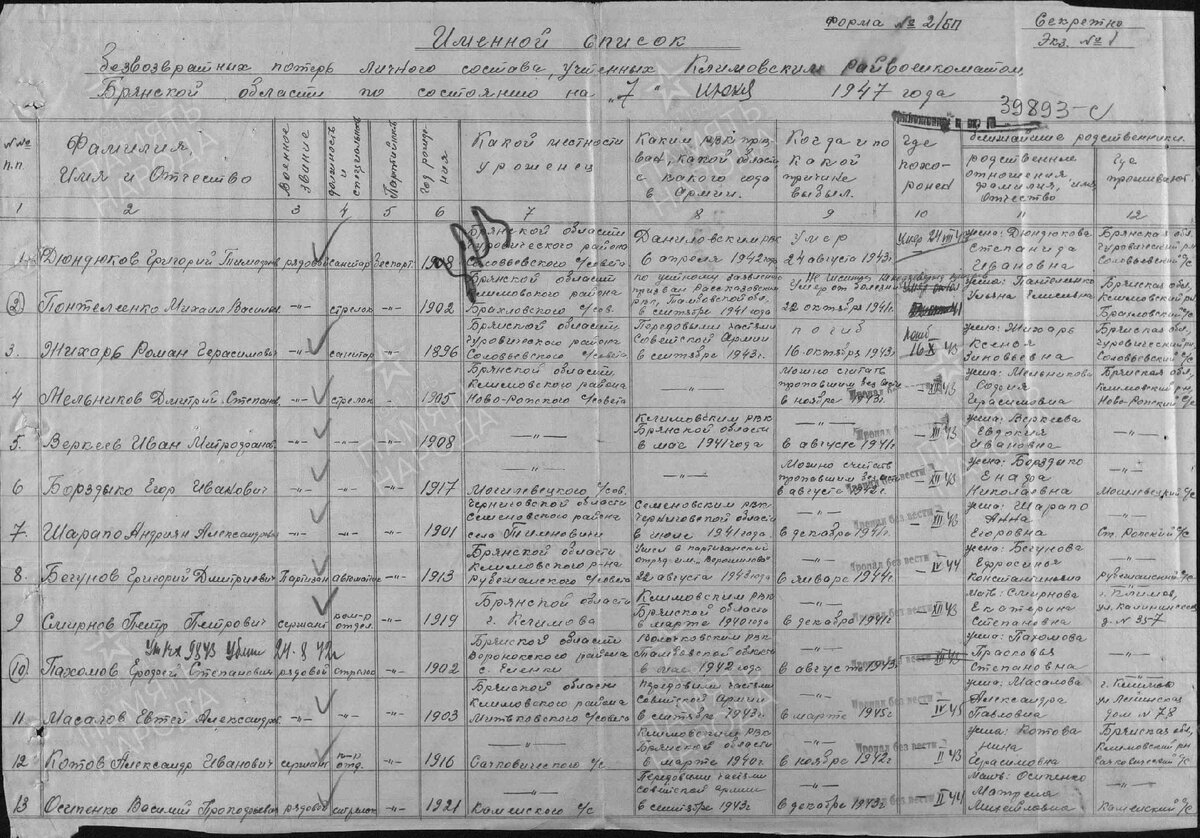 Форма № 2/БП
Секретно
Экз. № 1
Именной список
безвозвратных потерь личного состава, учтенных Климовским райвоенкоматом
Брянской области по состоянию на „7" июня 1947 года
39893-с
№№ п.п.
Фамилия, Имя и Отчество
Военное звание
должность и специальность
Партийность
Год рождения
Какой местности уроженец
Каким РВК призван, какой области с какого года в Армии.
Когда и по какой причине выбыл.
Где похоронен
ближайшие родственники.
родственные отношения, фамилия, имя, отчество
Где проживают.
1 2 3 4 5 6 7 8 9 10 11 12
1. Дюндюков Григорий рядовой санитар беспарт. 1908
Брянской области
Чуровического района
Соловьевского с/совета
Даниловским РВК
в апреля 1942 года
Умер
24 августа 1943г.
Умер 24 VIII 43
жена: Дюндюкова
Степанида
Ивановна
Брянская обл
Чуровический р.
Соловьевский с/с
2 Понтеленко Михаил -"- стрелок -"- 1902
Брянской области
Климовского района
с/сов.
по учетному
призван Рассказовским
РВК, Тамбовской обл.
в сентябре 1941 года
Умер от болезни
22 октября 1941г.
жена: Пантеленко
Ульяна
Брянская обл,
Климовский р.
с/с
3. Жихарь Роман Герасимович -"- санитар -"- 1896
Брянской области
Чуровического района
Соловьевского с/совета
Передовыми частями
Советской Армии
в сентябре 1943г.
погиб
16 октября 1943г.
16 X 43
жена: Жихарь
Ксенья
Зиновьевна
Брянская обл,
Чуровический р.
Соловьевский с/с
4 Мельников Дмитрий Степан. -"- стрелок -"- 1905
Брянской области
Климовского района
Ново-Ропского с/совета
-"-
Можно считать
пропавшим без вести
в ноябре 1943г.
жена: Мельникова
София
Герасимовна
Брянская обл,
Климовский р.
Ново-Ропский с/с
5. Веркеев Иван -"- -"- -"- 1908
-"-
Климовским РВК
Брянской области
в мае 1941 года
в августе 1941г.
Пропал без вести
XII 43
жена: Веркеева
Евдокия
Ивановна
-"-
6 Борздыко Егор Иванович -"- -"- -"- 1917
-"-
Могилевецкого с/сов.
-"-
Можно считать
пропавшим без вести
в августе 1942г.
XII 43
жена: Борздыко
Николаевна
-"-
с/с
7 Шарапо Андриян Александрович -"- -"- -"- 1901
Черниговской области
Семеновского района
село Тимновичи
Семеновским РВК
Черниговской области
в июле 1941 года
в декабре 1941г.
Пропал без вести
XII 43
жена: Шарапо
Егоровна
-"-
Ст. Ропский с/с
8. Бегунов Григорий Дмитриевич Партизан -"- 1913
Брянской области
Климовского р-на
Рубежанского с/совета
Ушел в партизанский
отряд им. Ворошилова
22 августа 1943 года
в январе 1944г.
Пропал без вести
IV 44
жена: Бегунова
Ефросинья
Константиновна
-"-
Рубежанский с/с
9 Смирнов Петр Петрович сержант ком-р отдел. -"- 1919
Брянской области
г. Климова
Климовским РВК
Брянской области
в марте 1940 года
в декабре 1941г.
Пропал без вести
XII 43
мать: Смирнова
Екатерина
Степановна
г. Климов,
ул. Калининская
д. № 357
9843 Убит 24-8 42г
10. Пахомов Степанович рядовой стрелок -"- 1902
Брянской области
Воронокского района
РВК
Тамбовской области
в мае 1942 года
в августе 1943г.
жена: Пахомова
Прасковья
Степановна
-"-
11 Масалов Евтей Александров. -"- -"- -"- 1903
Брянской области
Климовского района
Митьковского с/совета
Передовыми частями
Советской Армии
в сентябре 1943г.
в марте 1945г
Пропал без вести
IV 45
жена: Масалова
Александра
Павловна
г. Климов
ул Ленинская
дом № 78
12 Котов Александр Иванович сержант к-р отд. -"- 1916
-"-
Сачковического с/с
Климовским РВК
Брянской области
в марте 1940г.
в ноябре 1942г
Пропал без вести
II 43
жена: Котова
Нина
Герасимовна
Брянская обл,
Климовский рн.
Сачковический с/с
13 Осипенко Василий Прокофьевич рядовой стрелок -"- 1921
-"-
Каменского с/с
Передовыми частями
Советской армии
в сентябре 1943г.
в декабре 1943г.
Пропал без вести
II 44
Мать: Осипенко
Матрена
Михайловна
-"-
Каменский с/с
ПАМЯТЬ НАРОДА